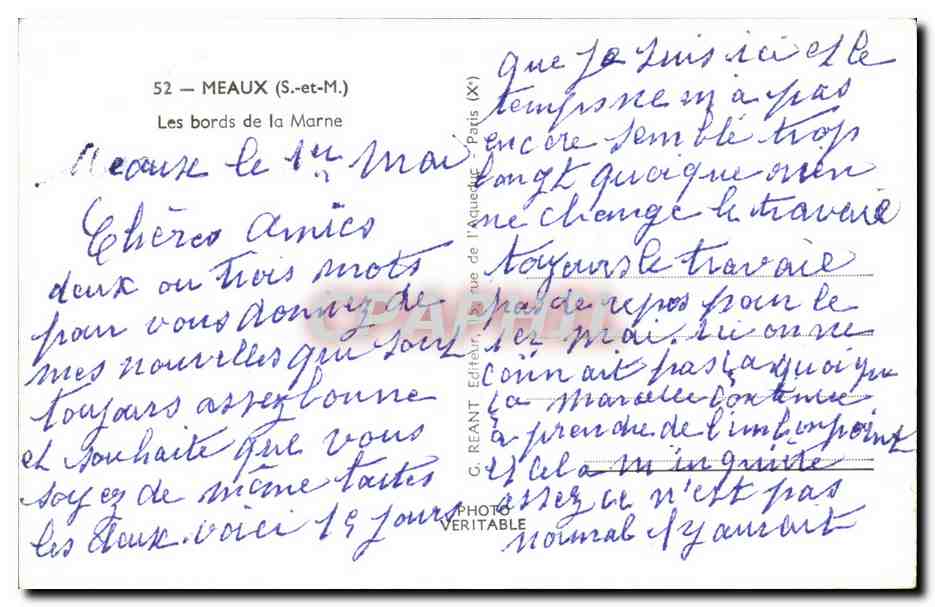 52 — MEAUX (S.-et-M.)
Les bords de la Marne
Meaux le 1er Mai
Chères Amies
deux ou trois mots
pour vous donnez de
mes nouvelles qui sont
toujours assez bonne
et souhaite que vous
soyez de même toutes
les deux. voici 15 jours
G. RÉANT Editeur, rue de l'Aqueduc - Paris (Xe)
PHOTO
VÉRITABLE
CPAPHIL
que je suis ici et le
temps ne m'a pas
encore semblé trop
longt quoique rien
ne change le travaie
toujours le travaie
pas de repos pour le
1er mai. ici on ne
connait pas ça quoique
ça Marcelle continue
a prendre de l'embonpoint
et cela m'inquiète
assez ce n'est pas
normal s'y aurait